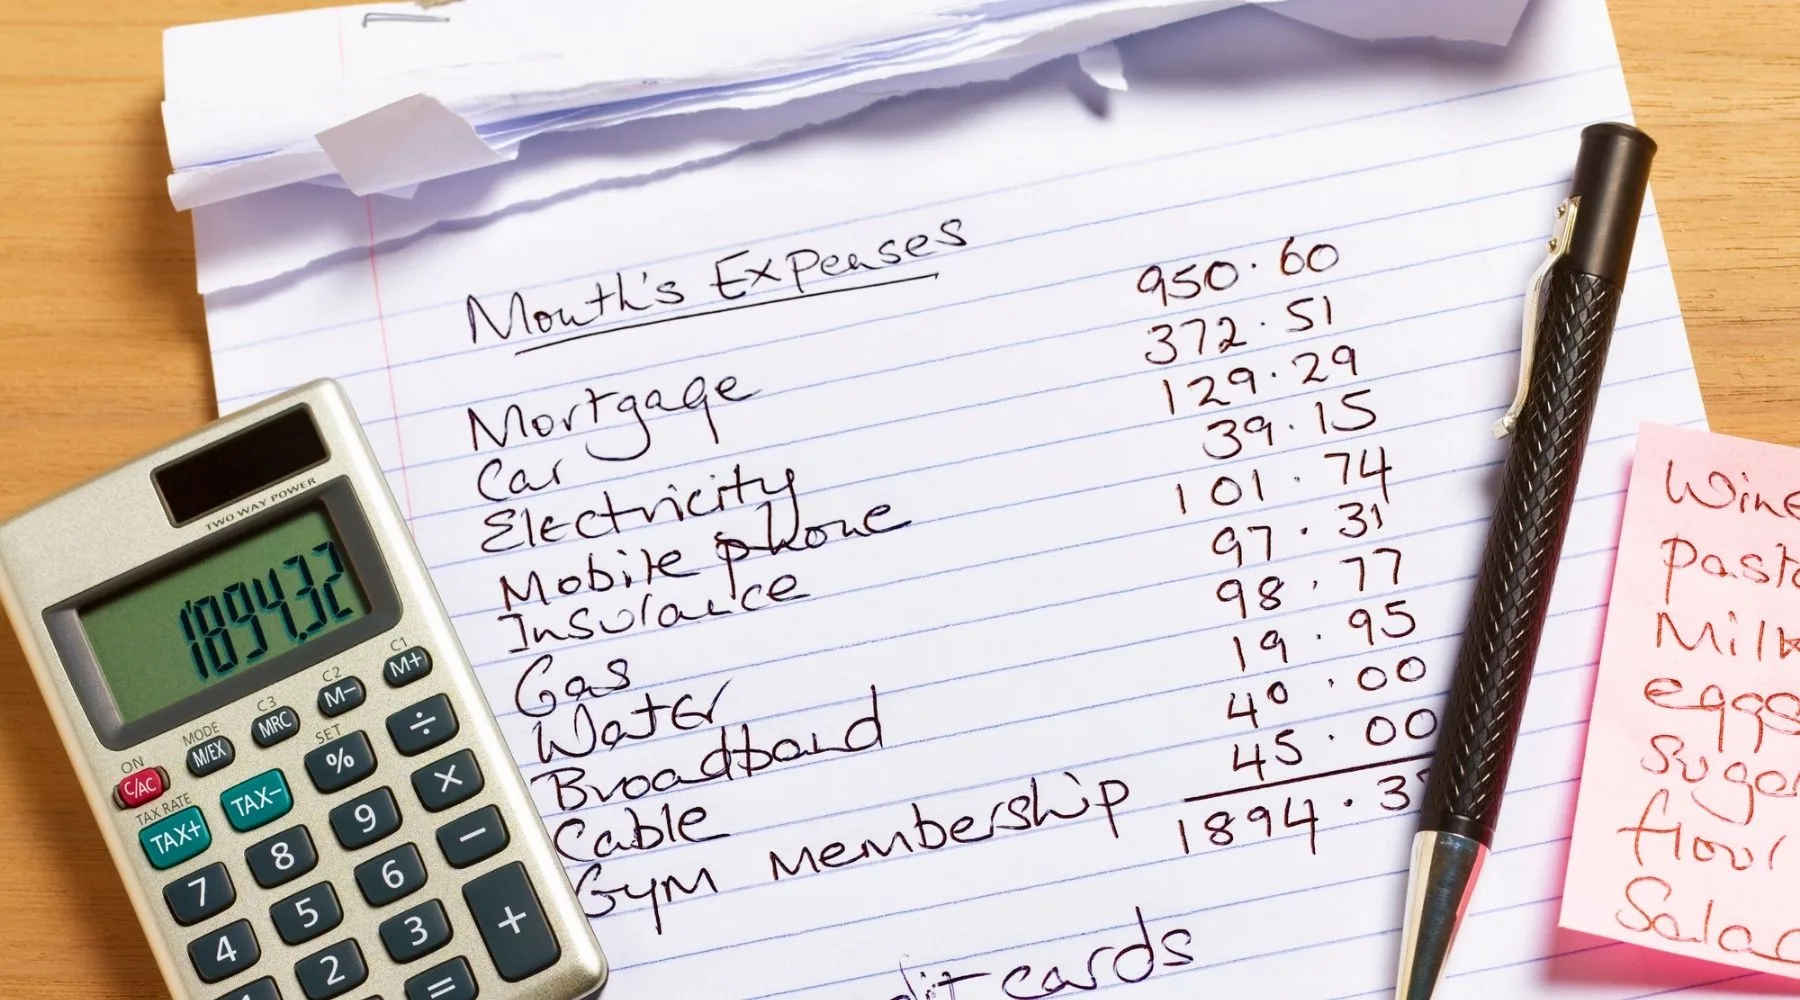 Month's Expenses
Mortgage 950.60
Car 372.51
Electricity 129.29
Mobile phone 39.15
Insurance 101.74
Gas 97.31
Water 98.77
Broadband 19.95
Cable 40.00
Gym Membership 45.00
1894.3
cards
TWO WAY POWER
1894.32
ON MODE C3 C2 C1
C/AC M/EX MRC M- M+
TAX RATE SET
TAX+ TAX- % ÷
7 8 9 ×
4 5 6 −
1 2 3 +
=
Wine
Pasta
Milk
eggs
Sugar
flour
Salad